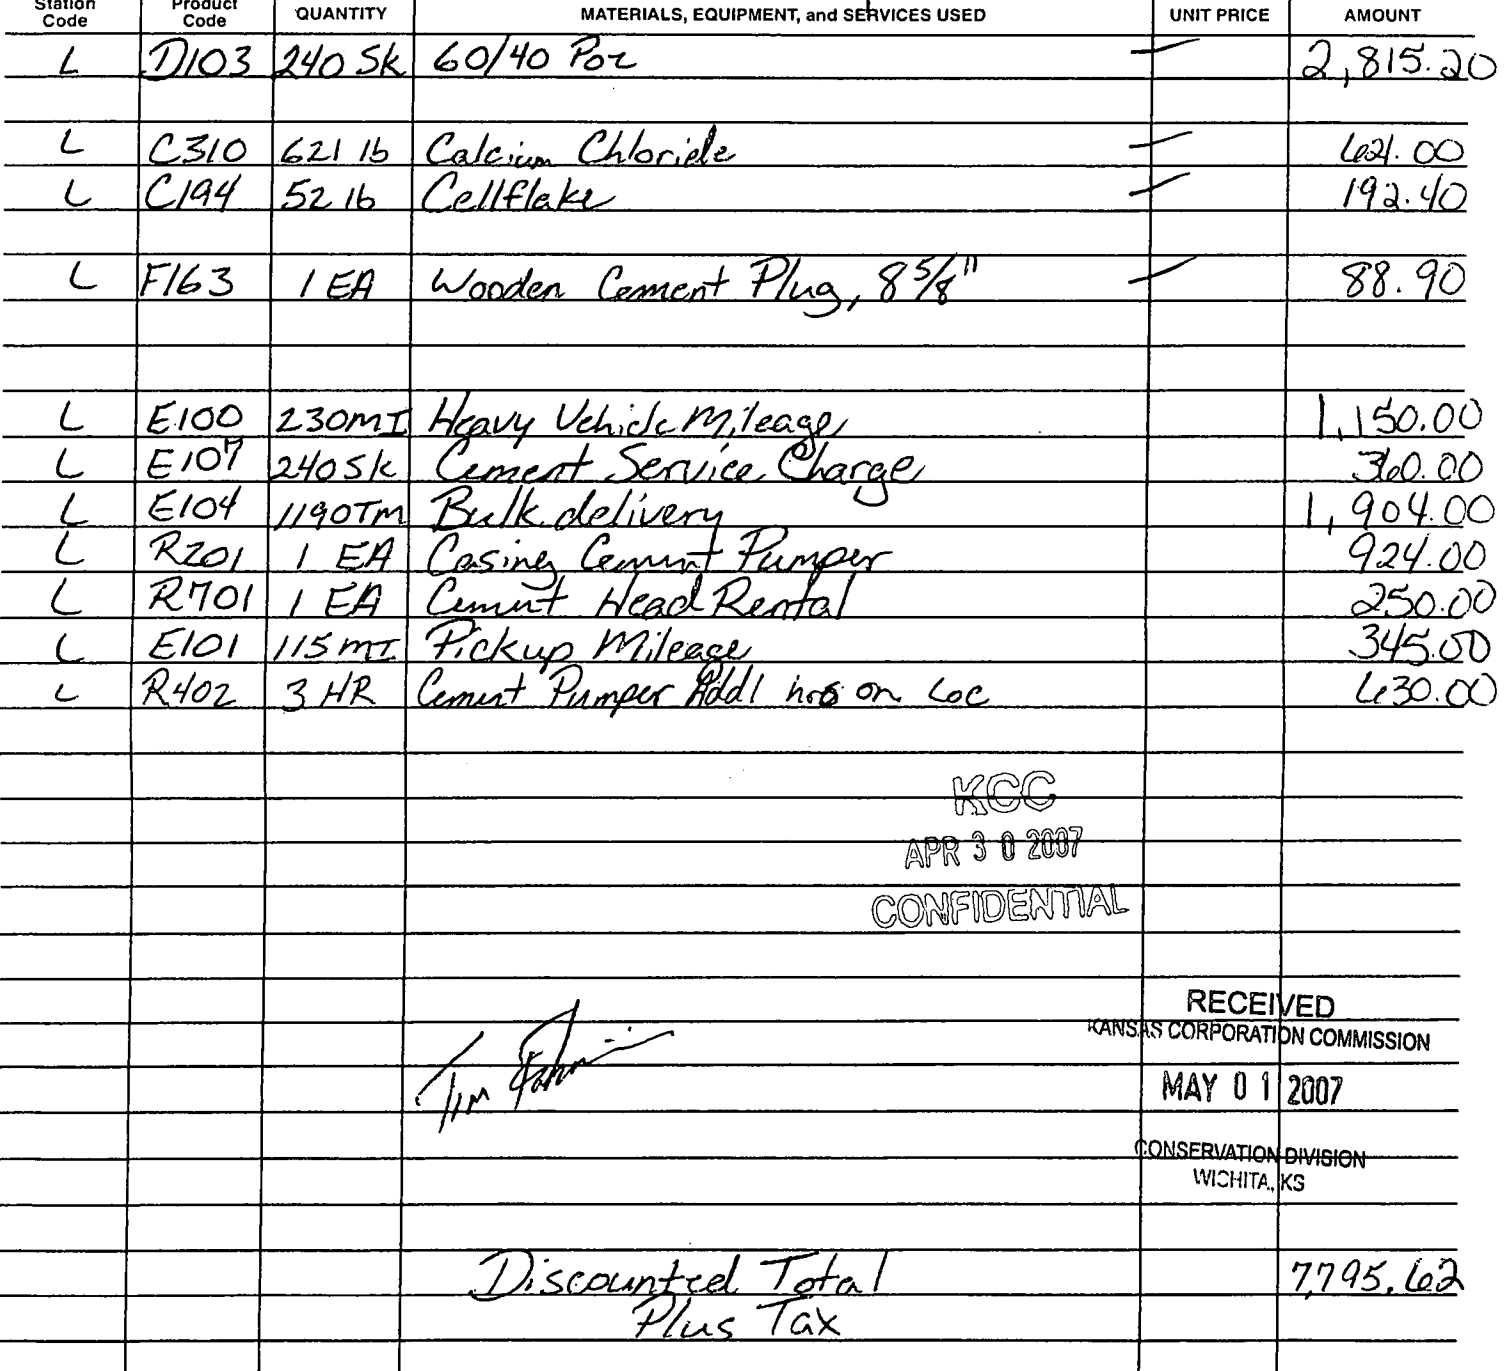 Station Code Product Code QUANTITY MATERIALS, EQUIPMENT, and SERVICES USED UNIT PRICE AMOUNT
L D103 240 Sk 60/40 Poz — 2,815.20
L C310 621 lb Calcium Chloride — 621.00
L C194 52 lb Cellflake — 192.40
L F163 1 EA Wooden Cement Plug, 8 5/8" — 88.90
L E100 230MI Heavy Vehicle Mileage 1,150.00
L E107 240 Sk Cement Service Charge 360.00
L E104 1190Tm Bulk delivery 1,904.00
L R201 1 EA Casing Cement Pumper 924.00
L R701 1 EA Cement Head Rental 250.00
L E101 115 MI Pickup Mileage 345.00
L R402 3 HR Cement Pumper Addl hrs on Loc 630.00
KCC
APR 30 2007
CONFIDENTIAL
RECEIVED
KANSAS CORPORATION COMMISSION
Tim
MAY 01 2007
CONSERVATION DIVISION
WICHITA, KS
Discounted Total 7,795.62
Plus Tax